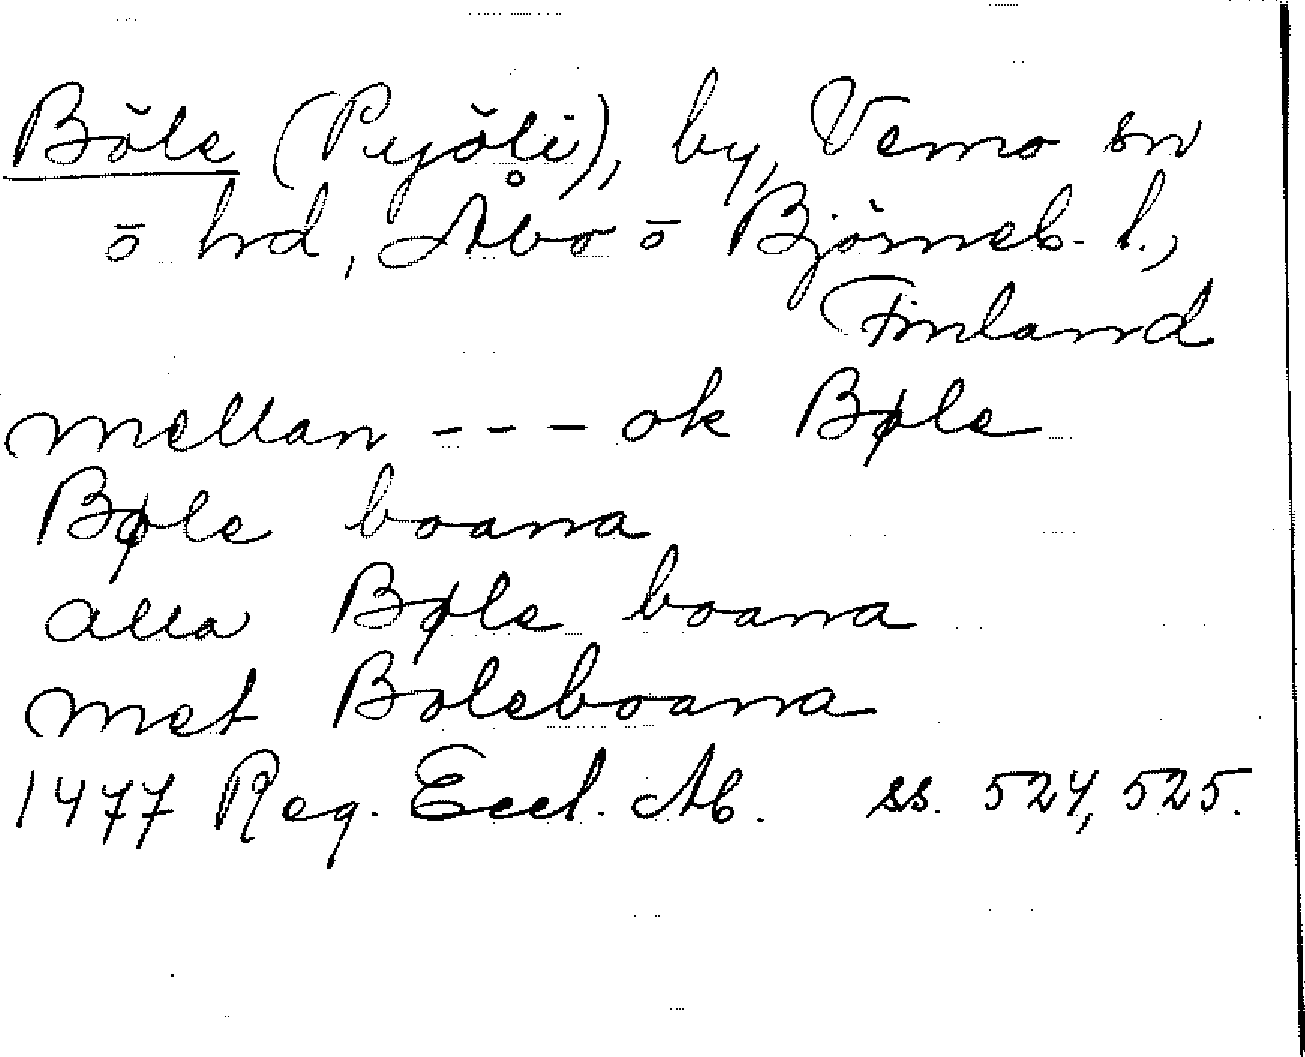 Böle (Pyöli), by, Vemo sn
ō hd, Åbo ō Björneb. l.,
Finland
mellan --- ok Bøle
Bøle boana
alla Bøle boana
met Boleboana
1477 Reg. Eccl. Ab. ss. 524, 525.